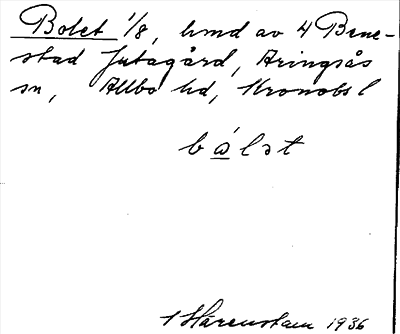 Bolet 1/8, hmd av 4 Bene-
stad Jutagård, Aringsås
sn, Allbo hd, Kronobs l
bólət
Härenstam 1936